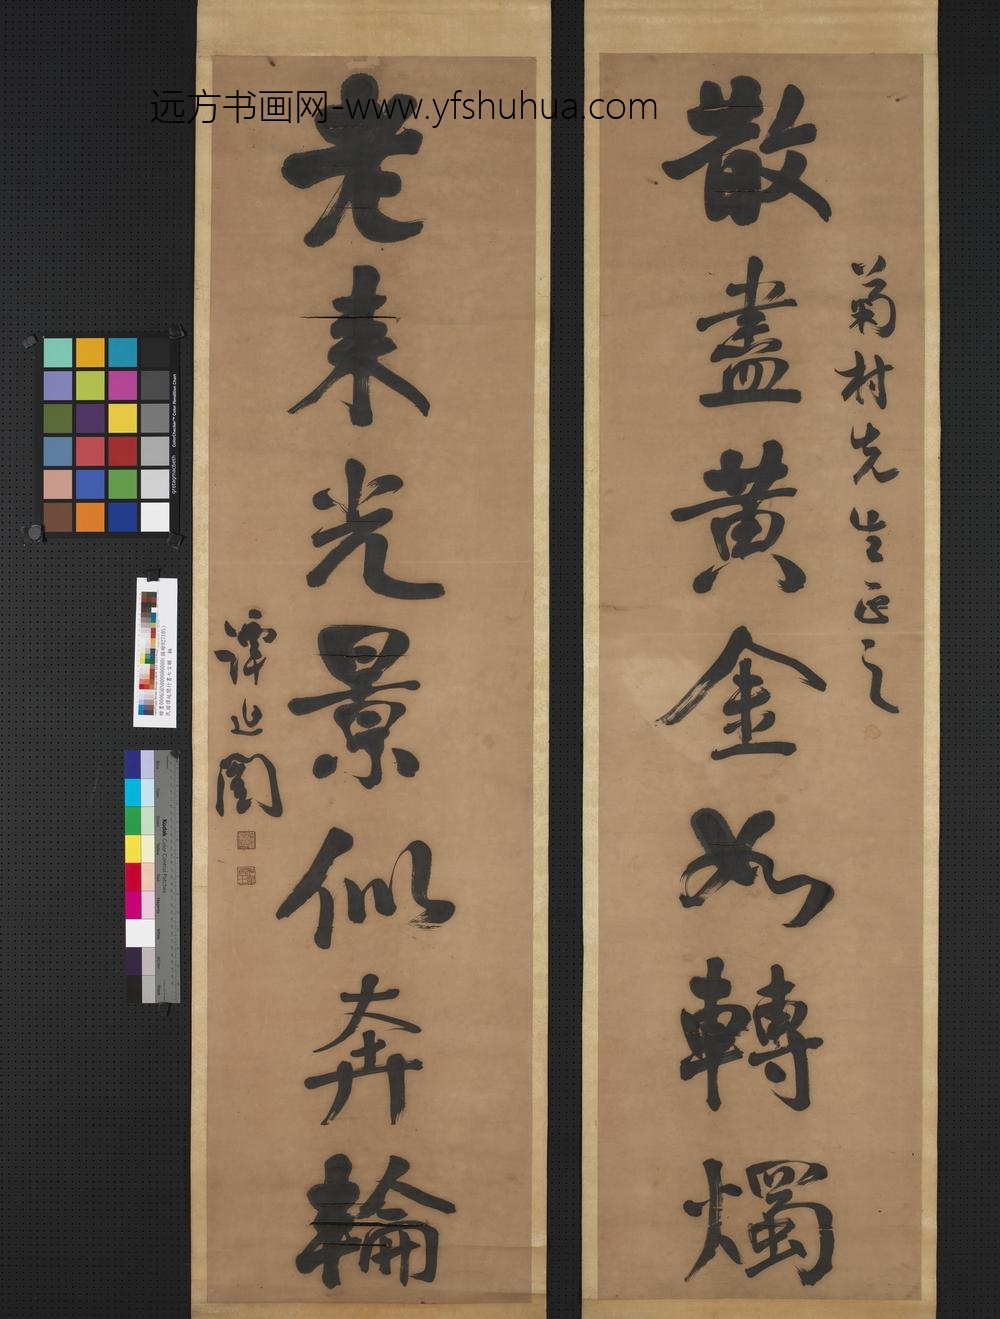 远方书画网-www.yfshuhua.com
散盡黄金如轉燭
菊村先生正之
老来光景似奔輪
譚延闓